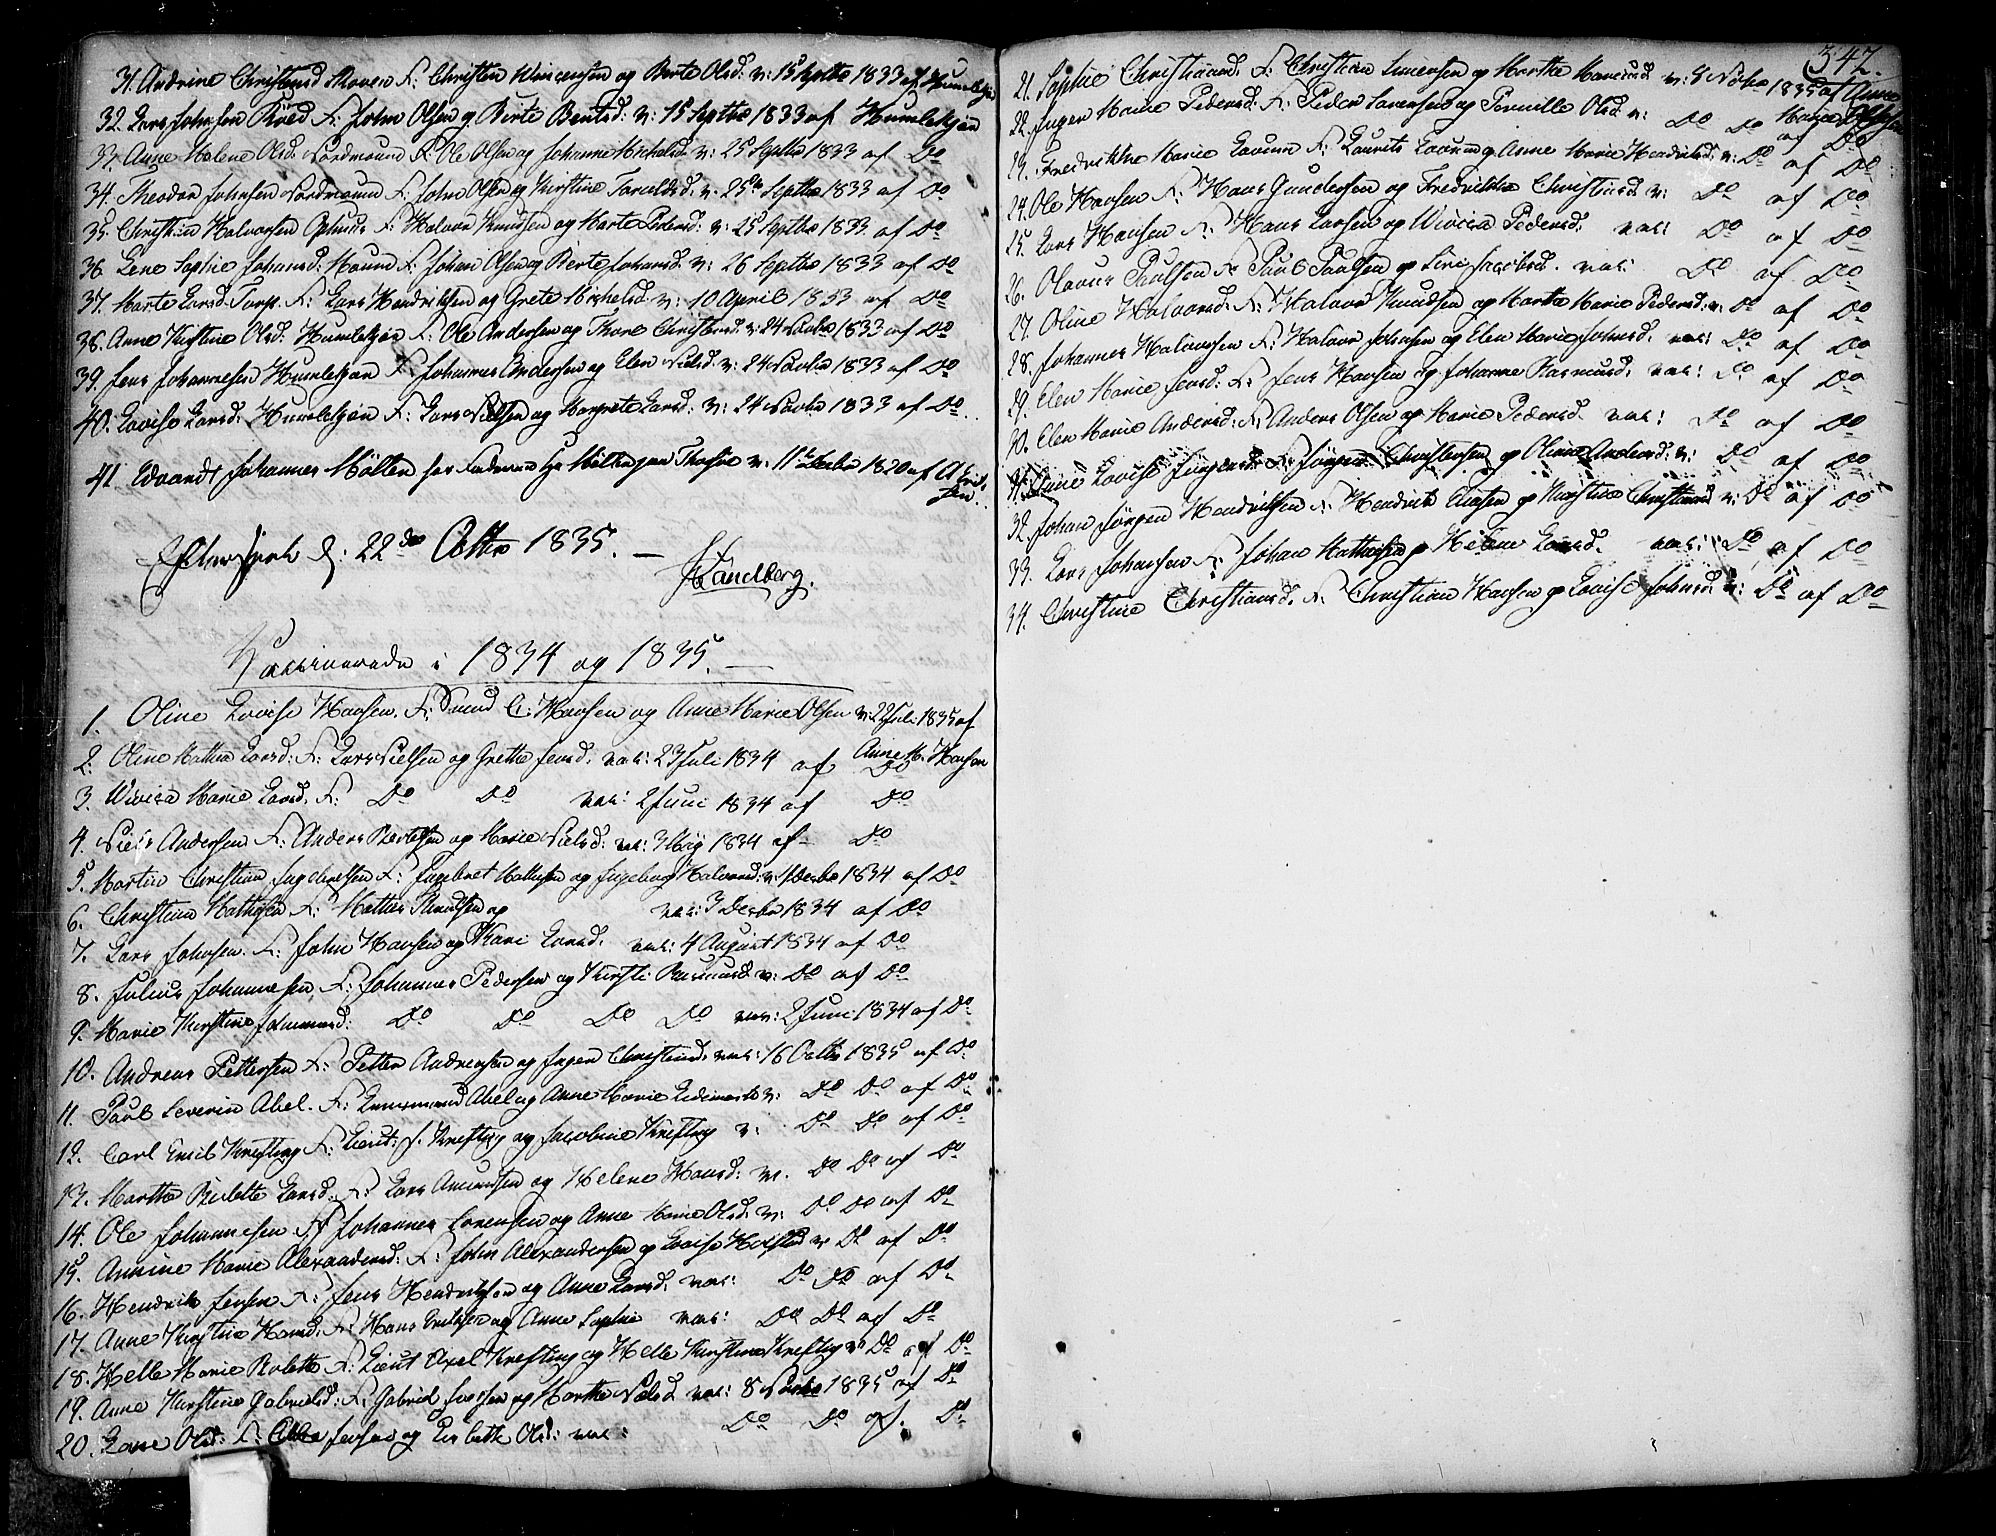 31. Andrine Christensd Skoven F: Christen Wincensen og Berte Olsd: v: 15 Septbr 1833 af Humlekjær
32. Lars Johnsen Röed F: John Olsen og Berte Bentsd: v: 15 Septbr 1833 af Humlekjær
33. Anne Malene Olsd: Nordmound F: Ole Olsen og Johanne Michelsd v: 25 Septbr 1833 af Do
34. Theodor Johnsen Nordmound F: John Olsen og Kirstine Taraldsd: v: 25de Septbr 1833 af Do
35. Christian Halvorsen Ophuus F: Halvor Knudsen og Marte Pedersd: v: 25 Septbr 1833 af Do
36. Lene Sophie Johansd: Mound F: Johan Olsen og Berte Johansd: v: 26 Septbr 1833 af Do
37. Marte Larsd: Torp. F: Lars Hendriksen og Grete Michelsd: v: 10 April 1833 af Do
38. Anne Kirstine Olsd: Humlekjær F: Ole Andersen og Thore Christensd: v: 24 Novbr 1833 af Do
39. Jens Johannesen Humlekjær F: Johannes Andersen og Elen Nielsd: v: 24 Novbr 1833 af Do
40. Lovise Larsd: Humlekjær F: Lars Nielsen og Margrete Larsd: v: 24 Novbr 1833 af Do
41 Edvardt Johannes Möller v: 11 1820 af
d: 22de Octbr 1835. —
Sandberg.
Vaccinerede i 1834 og 1835. —
1. Oline Lovise Hansen. F: Svend C: Hansen og Anne Marie Olsen v: 22 Juli 1835 af
Anne M. Hansen
2. Oline Mathea Larsd: F: Lars Nielsen og Grethe Jensd. vac: 23 Juli 1834 af Do
3. Wivica Marie Larsd. F: Do Do vac: 2 Juni 1834 af Do
4. Niels Andersen F: Anders Bertelsen og Marie Nielsd: vac: 3 Maj 1834 af Do
5. Martin Christian Ingebretsen F: Ingebret Mathisen og Ingeborg Halvorsd: v: 1 Decbr 1834 af Do
6. Christian Mathisen F: Mathis Knudsen og vac: 3 Decbr 1834 af Do
7. Lars Johnsen. F: John Hansen og Kari Larsd. vac: 4 August 1834 af Do
8. Julius Johannesen, F: Johannes Pedersen og Kirsti Rasmusd: v: Do af Do
9. Marie Kirstine Johannesd: Do Do Do Do vac: 2 Juni 1834 af Do
10. Andreas Pettersen F: Petter Andreasen og Inger Christiansd. vac: 16 Octbr 1835 af Do
11. Paul Severin Abel. F: Abel og Anne Marie v: Do Do af Do
12. Carl Emil Krefting F: Lieut: J. Krefting og Jacobine Krefting v: Do Do af Do
13. Marthe Larsd: F: Lars Amundsen og Helene Hansd: v: Do Do af Do
14. Ole Johannesen F: Johannes Sörensen og Anne Marie Olsd: v: Do Do af Do
15. Annine Marie Alexandersd: F: John Alexandersen og Lovise v: Do af Do
16. Hendrik Jensen F: Jens Hendriksen og Anne Larsd. vac: Do Do af Do
17. Anne Kirstine Hansd: F: Hans Eriksen og Anne Sophie vac: Do Do af Do
18. Helle Marie F: Lieut Axel Krefting og Helle Kirstine Krefting v: Do af Do
19. Anne Kirstine Gabrielsd: F: Gabriel og Marthe Nielsd vac: 8 Novbr 1835 af Do
20. Lane Olsd: F: Jensen og Lisbeth Olsd: vac: Do Do af. Do
342.
21. Sophie Christiansd. F: Christian Simensen og Marthe Hansd: v: 5 Novbr 1835 af Anne
Marie Olsen
22. Inger Marie Pedersd: F: Peder Sörensen og Pernille Olsd v: Do Do af Do
23. Fredrikke Marie F: Laurits og Anne Marie Hendriksd: v: Do af Do
24. Ole Hansen F: Hans Gundersen og Fredrikke Christensd v: Do af Do
25. Lars Hansen F: Hans Larsen og Wivica Pedersd. vac: Do af Do
26. Olavus Paulsen F: Paul Paulsen og Siri Jacobsd. vac: Do af Do
27. Oline Halvorsd. F: Halvor Knudsen og Marthe Marie Pedersd: v: Do af Do
28. Johannes Halvorsen F: Halvor Johnsen og Elen Marie Johnsd. vac: Do af Do
29. Elen Marie Jensd: F: Jens Hansen og Johanne Rasmusd. vac: Do af Do
30. Elen Marie Andersd: F: Anders Olsen og Marie Pedersd. vac: Do af Do
31. Lovise Jörgensd: F: Jörgen Christensen og Oline Andersd: v: Do af Do
32. Johan Jörgen Hendriksen F: Hendrik og Kirstine Christiansd v: Do af Do
33. Lars Johansen F: Johan Mathisen og Helene Larsd. vac: Do af Do
34. Christine Christiansd. F: Christian Hansen og Lovise Johnsd: v: Do af Do